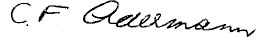 C. F. Adermann